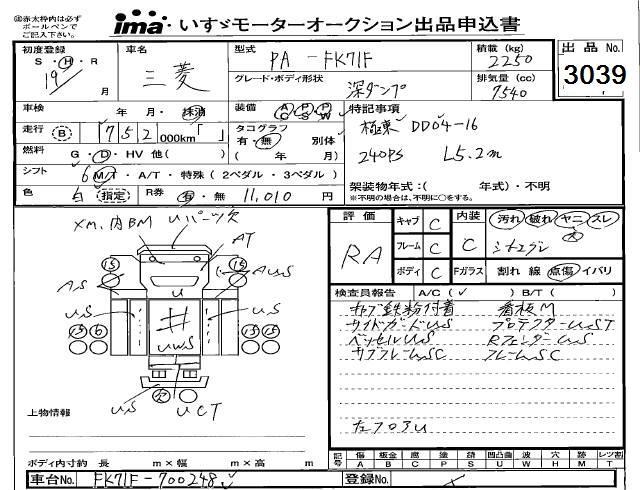 ㊟赤太枠内は必ず
ボールペンで
ご記入下さい。
ima いすゞモーターオークション出品申込書
初度登録 S・H・R 19 月
車名 三菱
型式 PA-FK71F
グレード・ボディ形状 深ダンプ
積載(kg) 2250
排気量(cc) 7540
出品No. 3039
車検 年 月・抹消
装備 A/C P/S P/W
特記事項
極東 DD04-16
240PS L5.2m
走行 (B) 「752 000km「 」
タコグラフ 別体
有・無 ( 年 月)
燃料 G・D・HV 他( )
シフト 6 M/T・A/T・特殊(2ペダル・3ペダル)
架装物年式:( 年式)・不明
※不明の場合は、不明に〇をする。
色 白 指定 R券 有・無 11,010 円
評価 RA
キャブ C
フレーム C
ボディ C
内装 C
汚れ 破れ ヤニ スレ
大
Fガラス 割れ 線 点傷 イパリ
検査員報告 A/C(✓) B/T( )
キャブ鉄粉付着 看板M
サイドガードUS プロテクターUST
ベッセルUS RフェンダーUS
サブフレームSC フレームSC
左フロアU
XM、内BM Uパーツ欠
AT
15 15
AS AUS
US US
U
#
UWS
15 6
欠
US UCT
上物情報
ボディ内寸約 長 m×幅 m×高 m
記号 傷A 板金B 腐C 塗P 錆S 凹凸曲U 波W 穴H 跡M レツ割T
車台No. FK71F-700248
登録No.